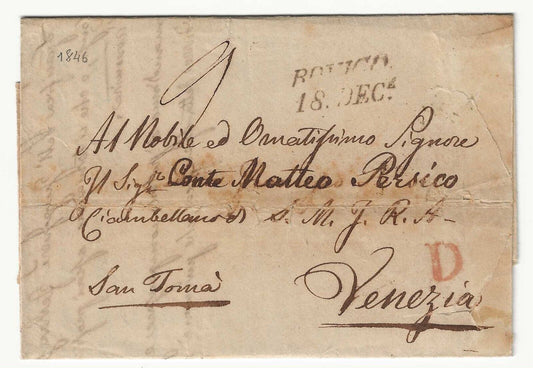 1846
9
ROVIGO
18. DEC.
Al Nobile ed Ornatissimo Signore
Il Sigr. Conte Matteo Persico
Ciambellano di S. M. I. R. A.
D
San Tomà
Venezia